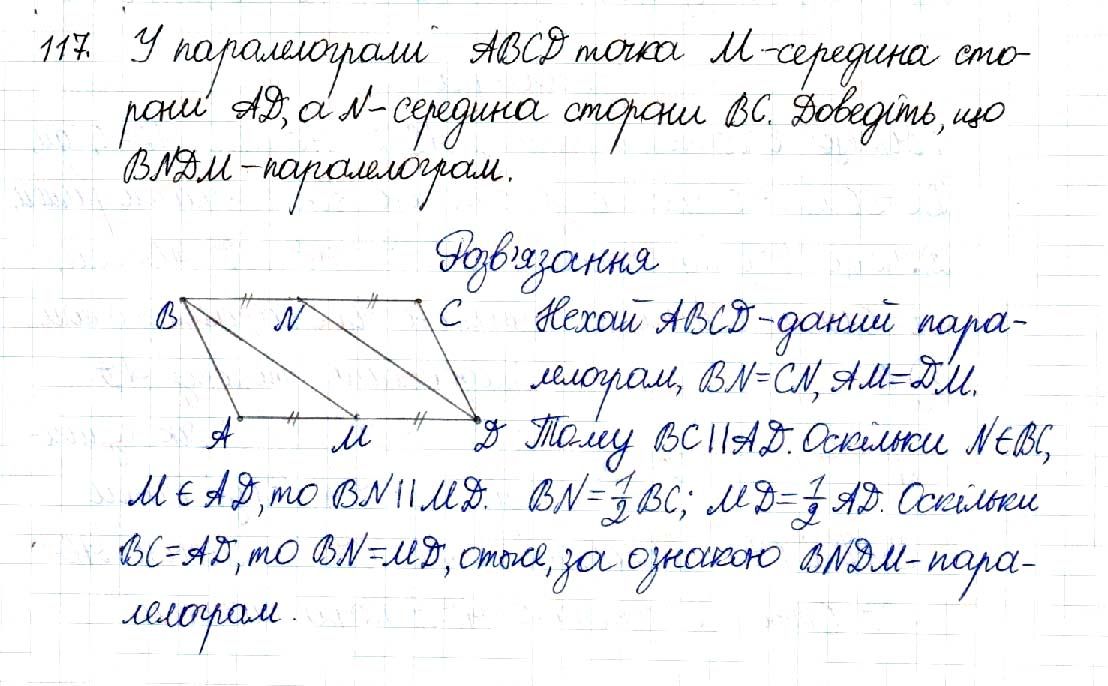 117. У паралелограмі ABCD точка M-середина сто-
рони AD, а N-середина сторони BC. Доведіть, що
BNDM-паралелограм.
Розв'язання
B N C
A M D
Нехай ABCD-даний пара-
лелограм, BN=CN, AM=DM.
Тому BC||AD. Оскільки N∈BC,
M∈AD, то BN||MD. BN=1/2 BC; MD=1/2 AD. Оскільки
BC=AD, то BN=MD, отже, за ознакою BNDM-пара-
лелограм.